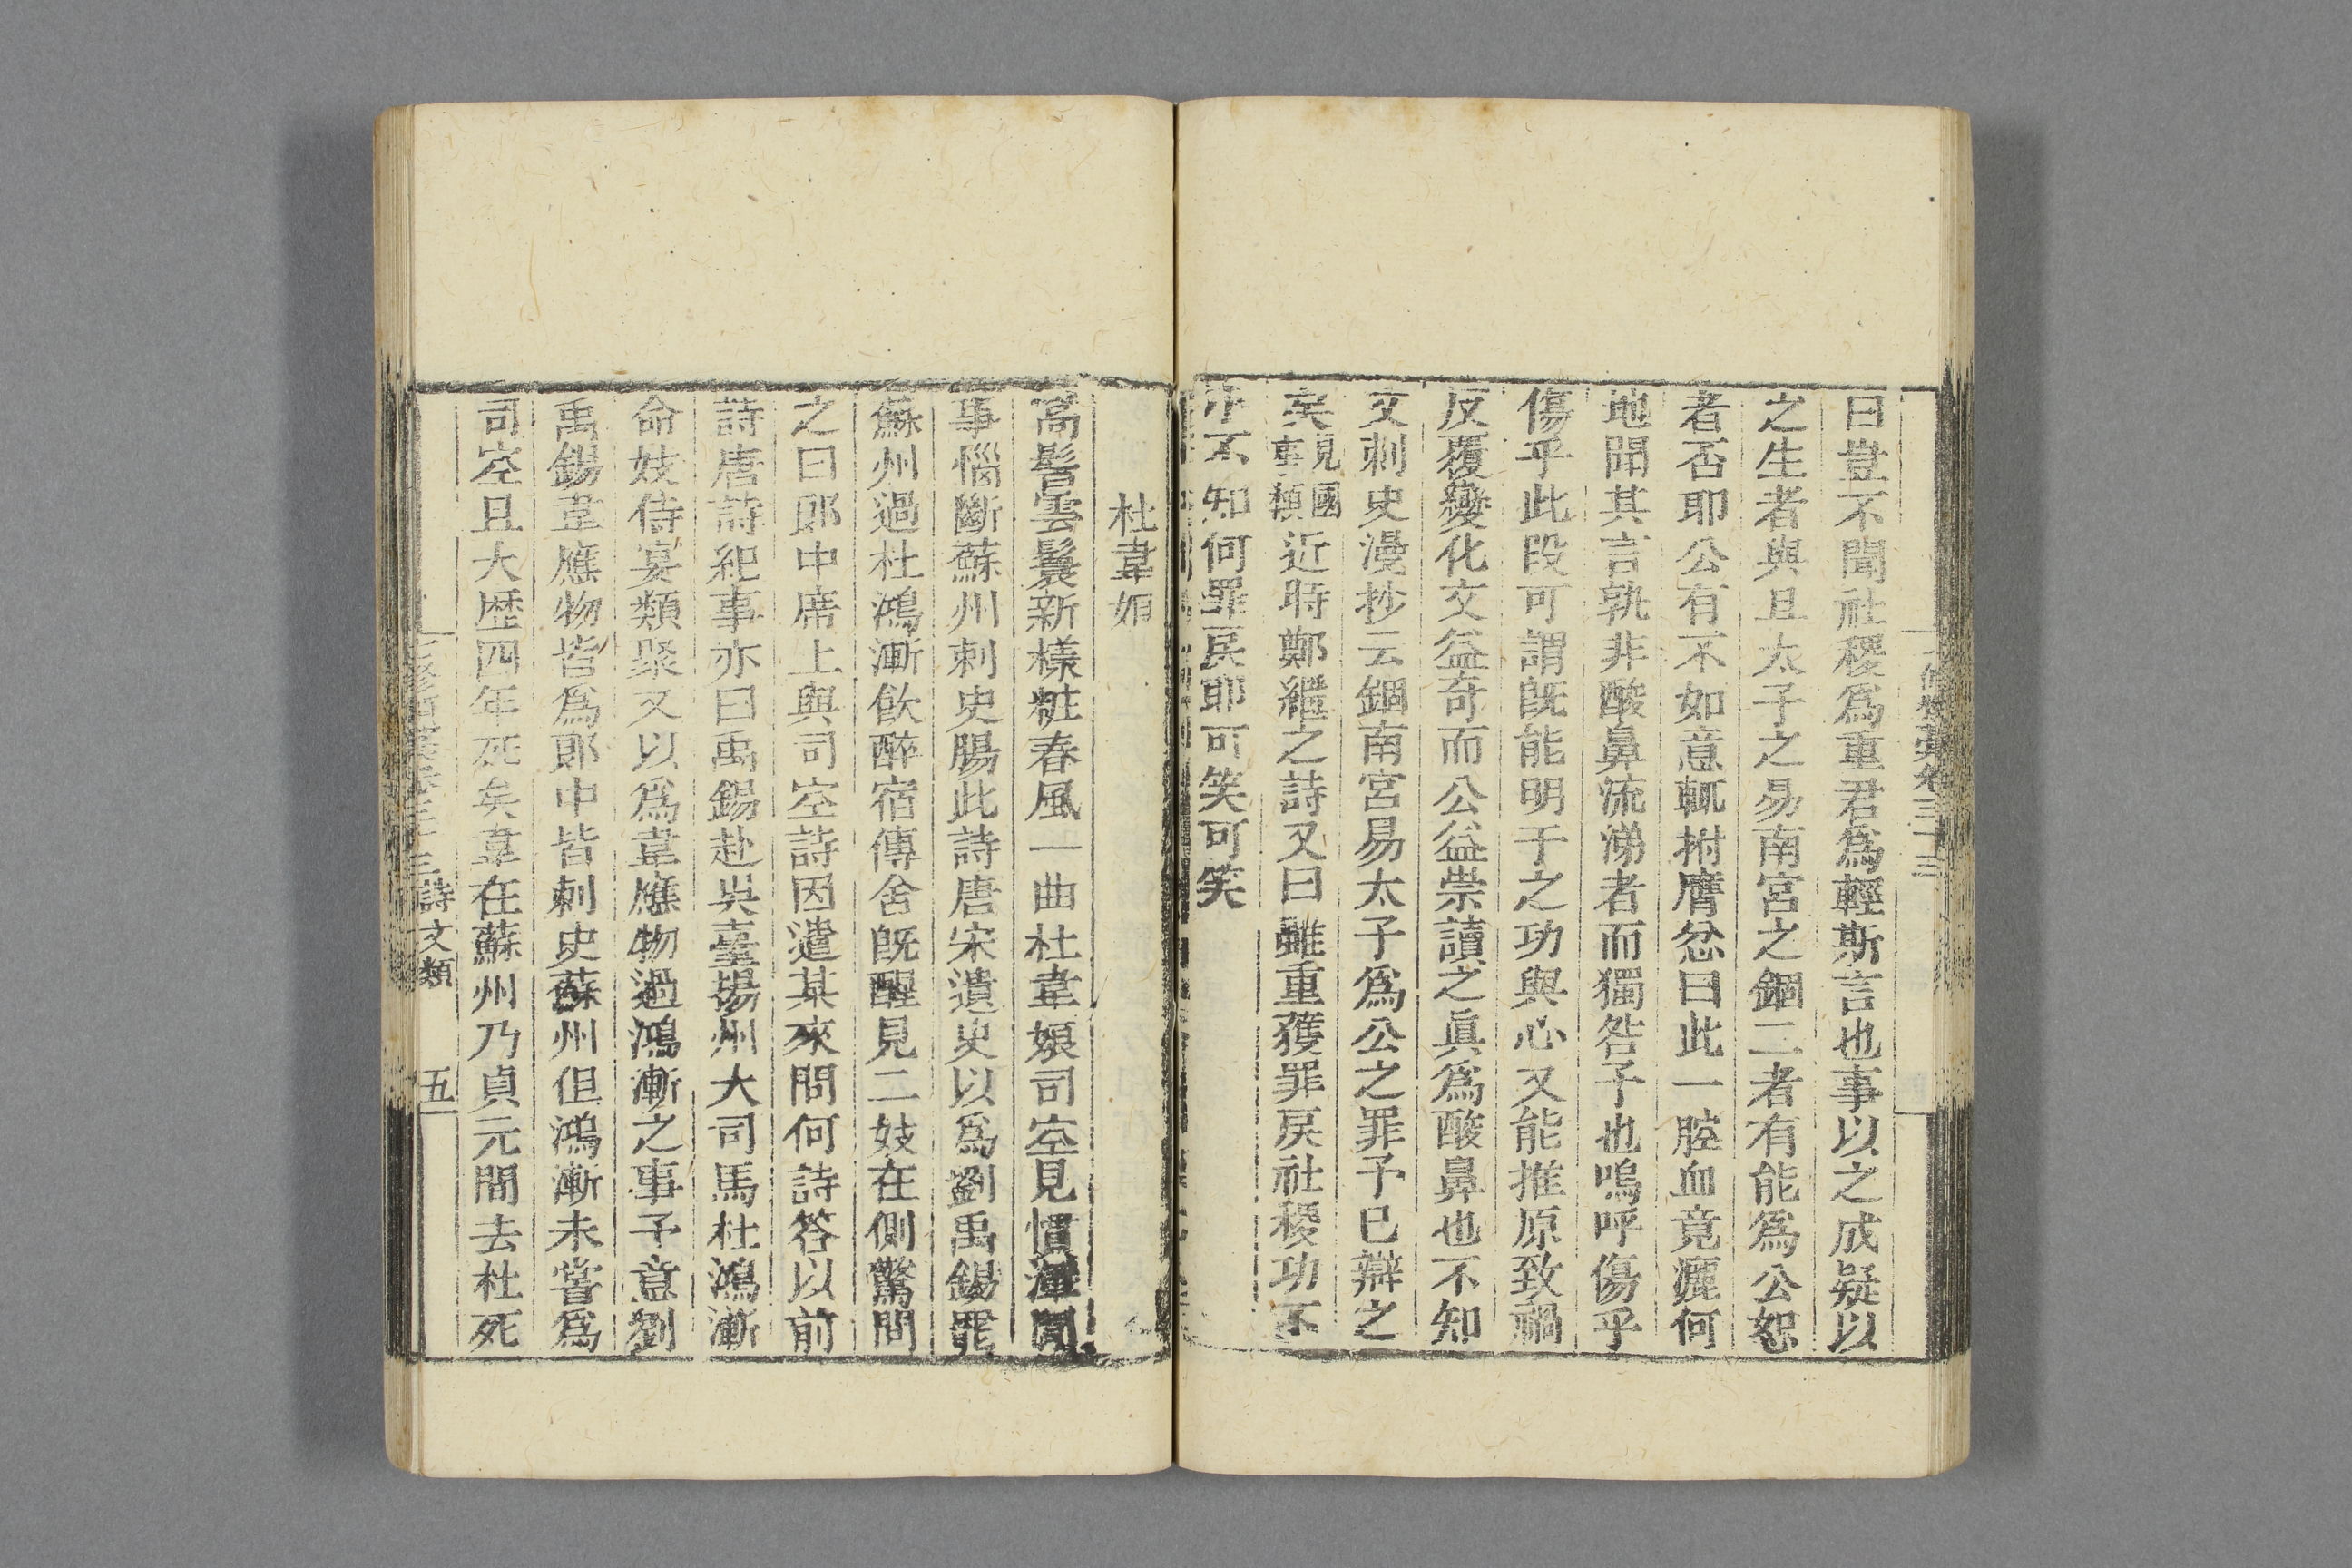 曰豈不聞社稷爲重君爲輕斯言也事以之成疑以
之生者與且太子之易南宮之錮二者有能爲公恕
者否耶公有不如意輒拊膺忿曰此一腔血竟灑何
地聞其言孰非酸鼻流涕者而獨咎予也嗚呼傷乎
傷乎此段可謂旣能明于之功與心又能推原致禍
反覆變化文益奇而公益崇讀之眞爲酸鼻也不知
又刺史漫抄云錮南宮易太子爲公之罪予已辯之
矣見國事類近時鄭繼之詩又曰雖重獲罪戾社稷功不
亦不知何罪戾耶可笑可笑
杜韋娘
高髻雲鬟新樣粧春風一曲杜韋娘司空見慣渾閒
事惱斷蘇州刺史腸此詩唐宋遺史以爲劉禹錫罷
蘇州過杜鴻漸飲醉宿傳舍旣醒見二妓在側驚問
之曰郎中席上與司空詩因遣某來問何詩答以前
詩唐詩紀事亦曰禹錫赴吳臺揚州大司馬杜鴻漸
命妓侍宴類聚又以爲韋應物過鴻漸之事予意劉
禹錫韋應物皆爲郎中皆刺史蘇州但鴻漸未嘗爲
司空且大歷四年死矣韋在蘇州乃貞元間去杜死
詩文類 五